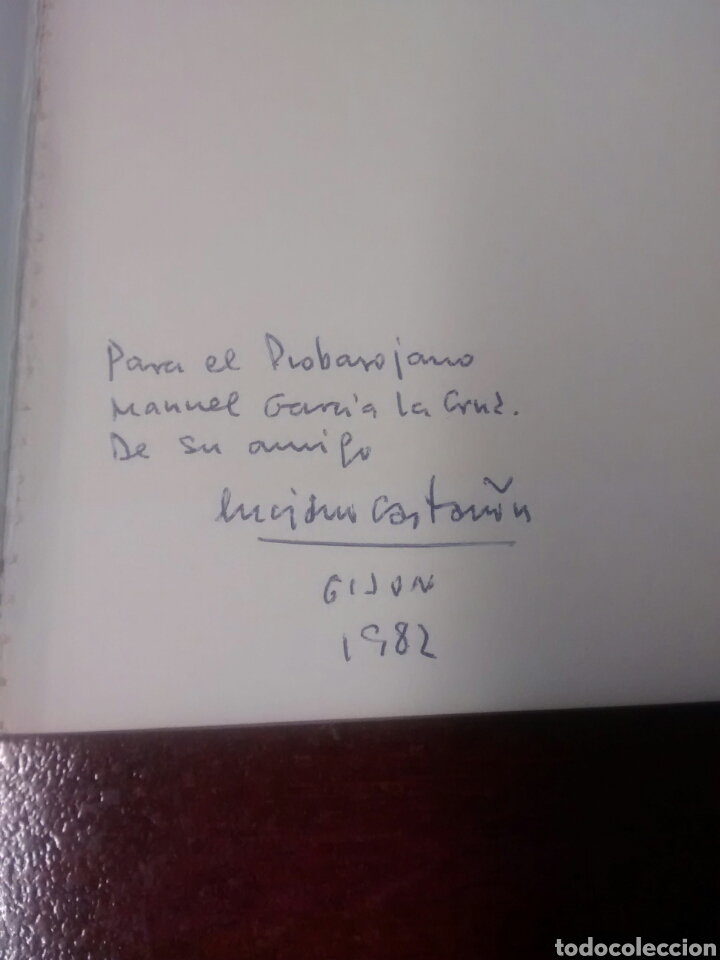 Para el Piobarojano
Manuel García la Cruz.
De su amigo
Luciano Castañón
GIJON
1982
todocoleccion